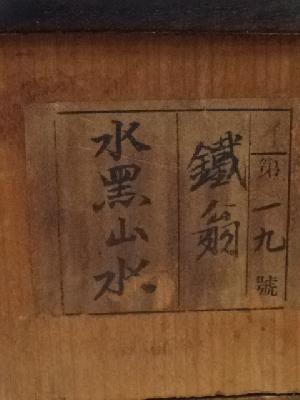 イ第一九號
鐵翁
水墨山水